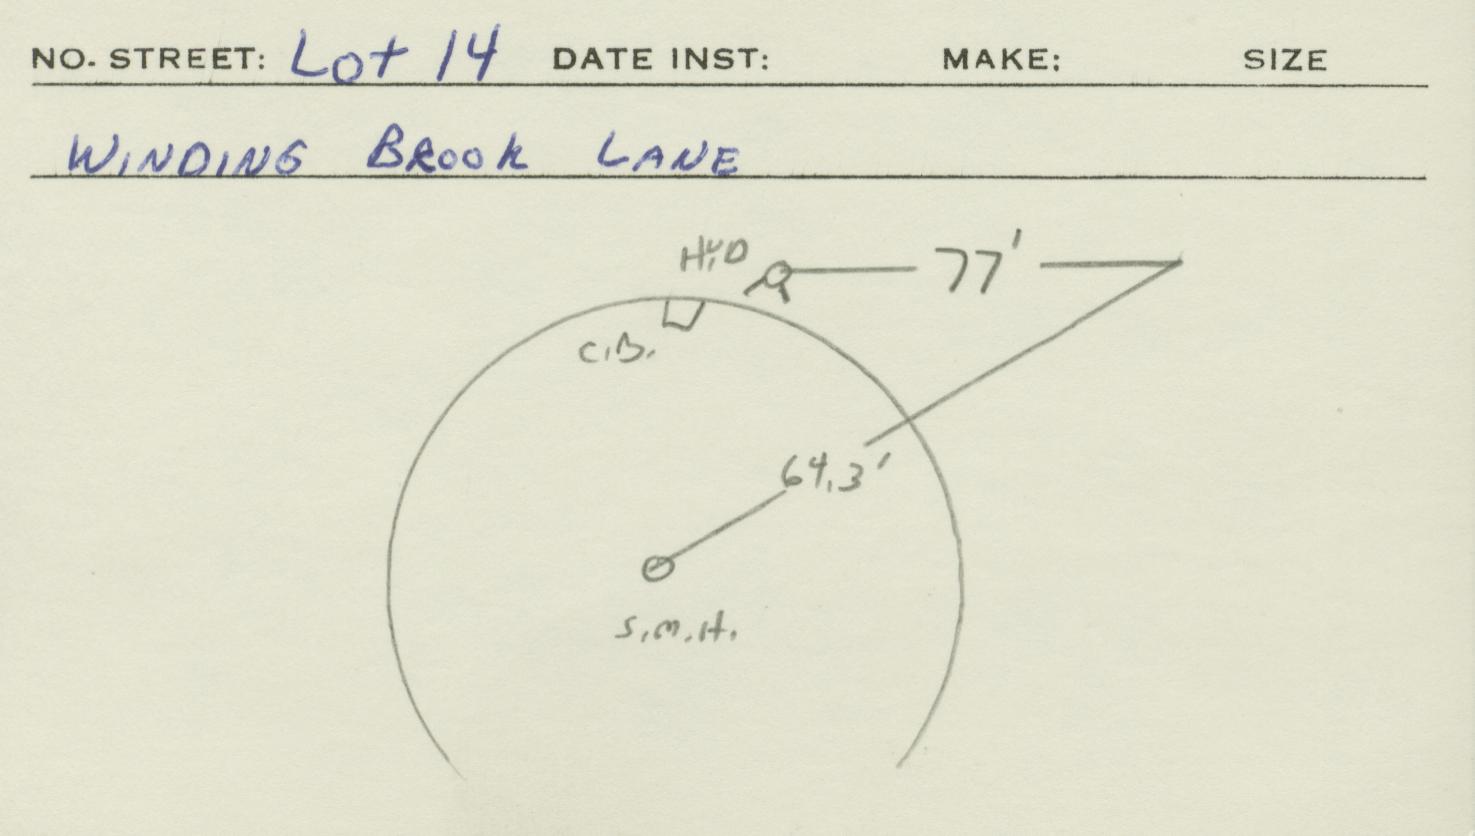 NO. STREET: Lot 14 DATE INST: MAKE: SIZE
WINDING BROOK LANE
HYD
77'
C.B.
64.3'
S.M.H.